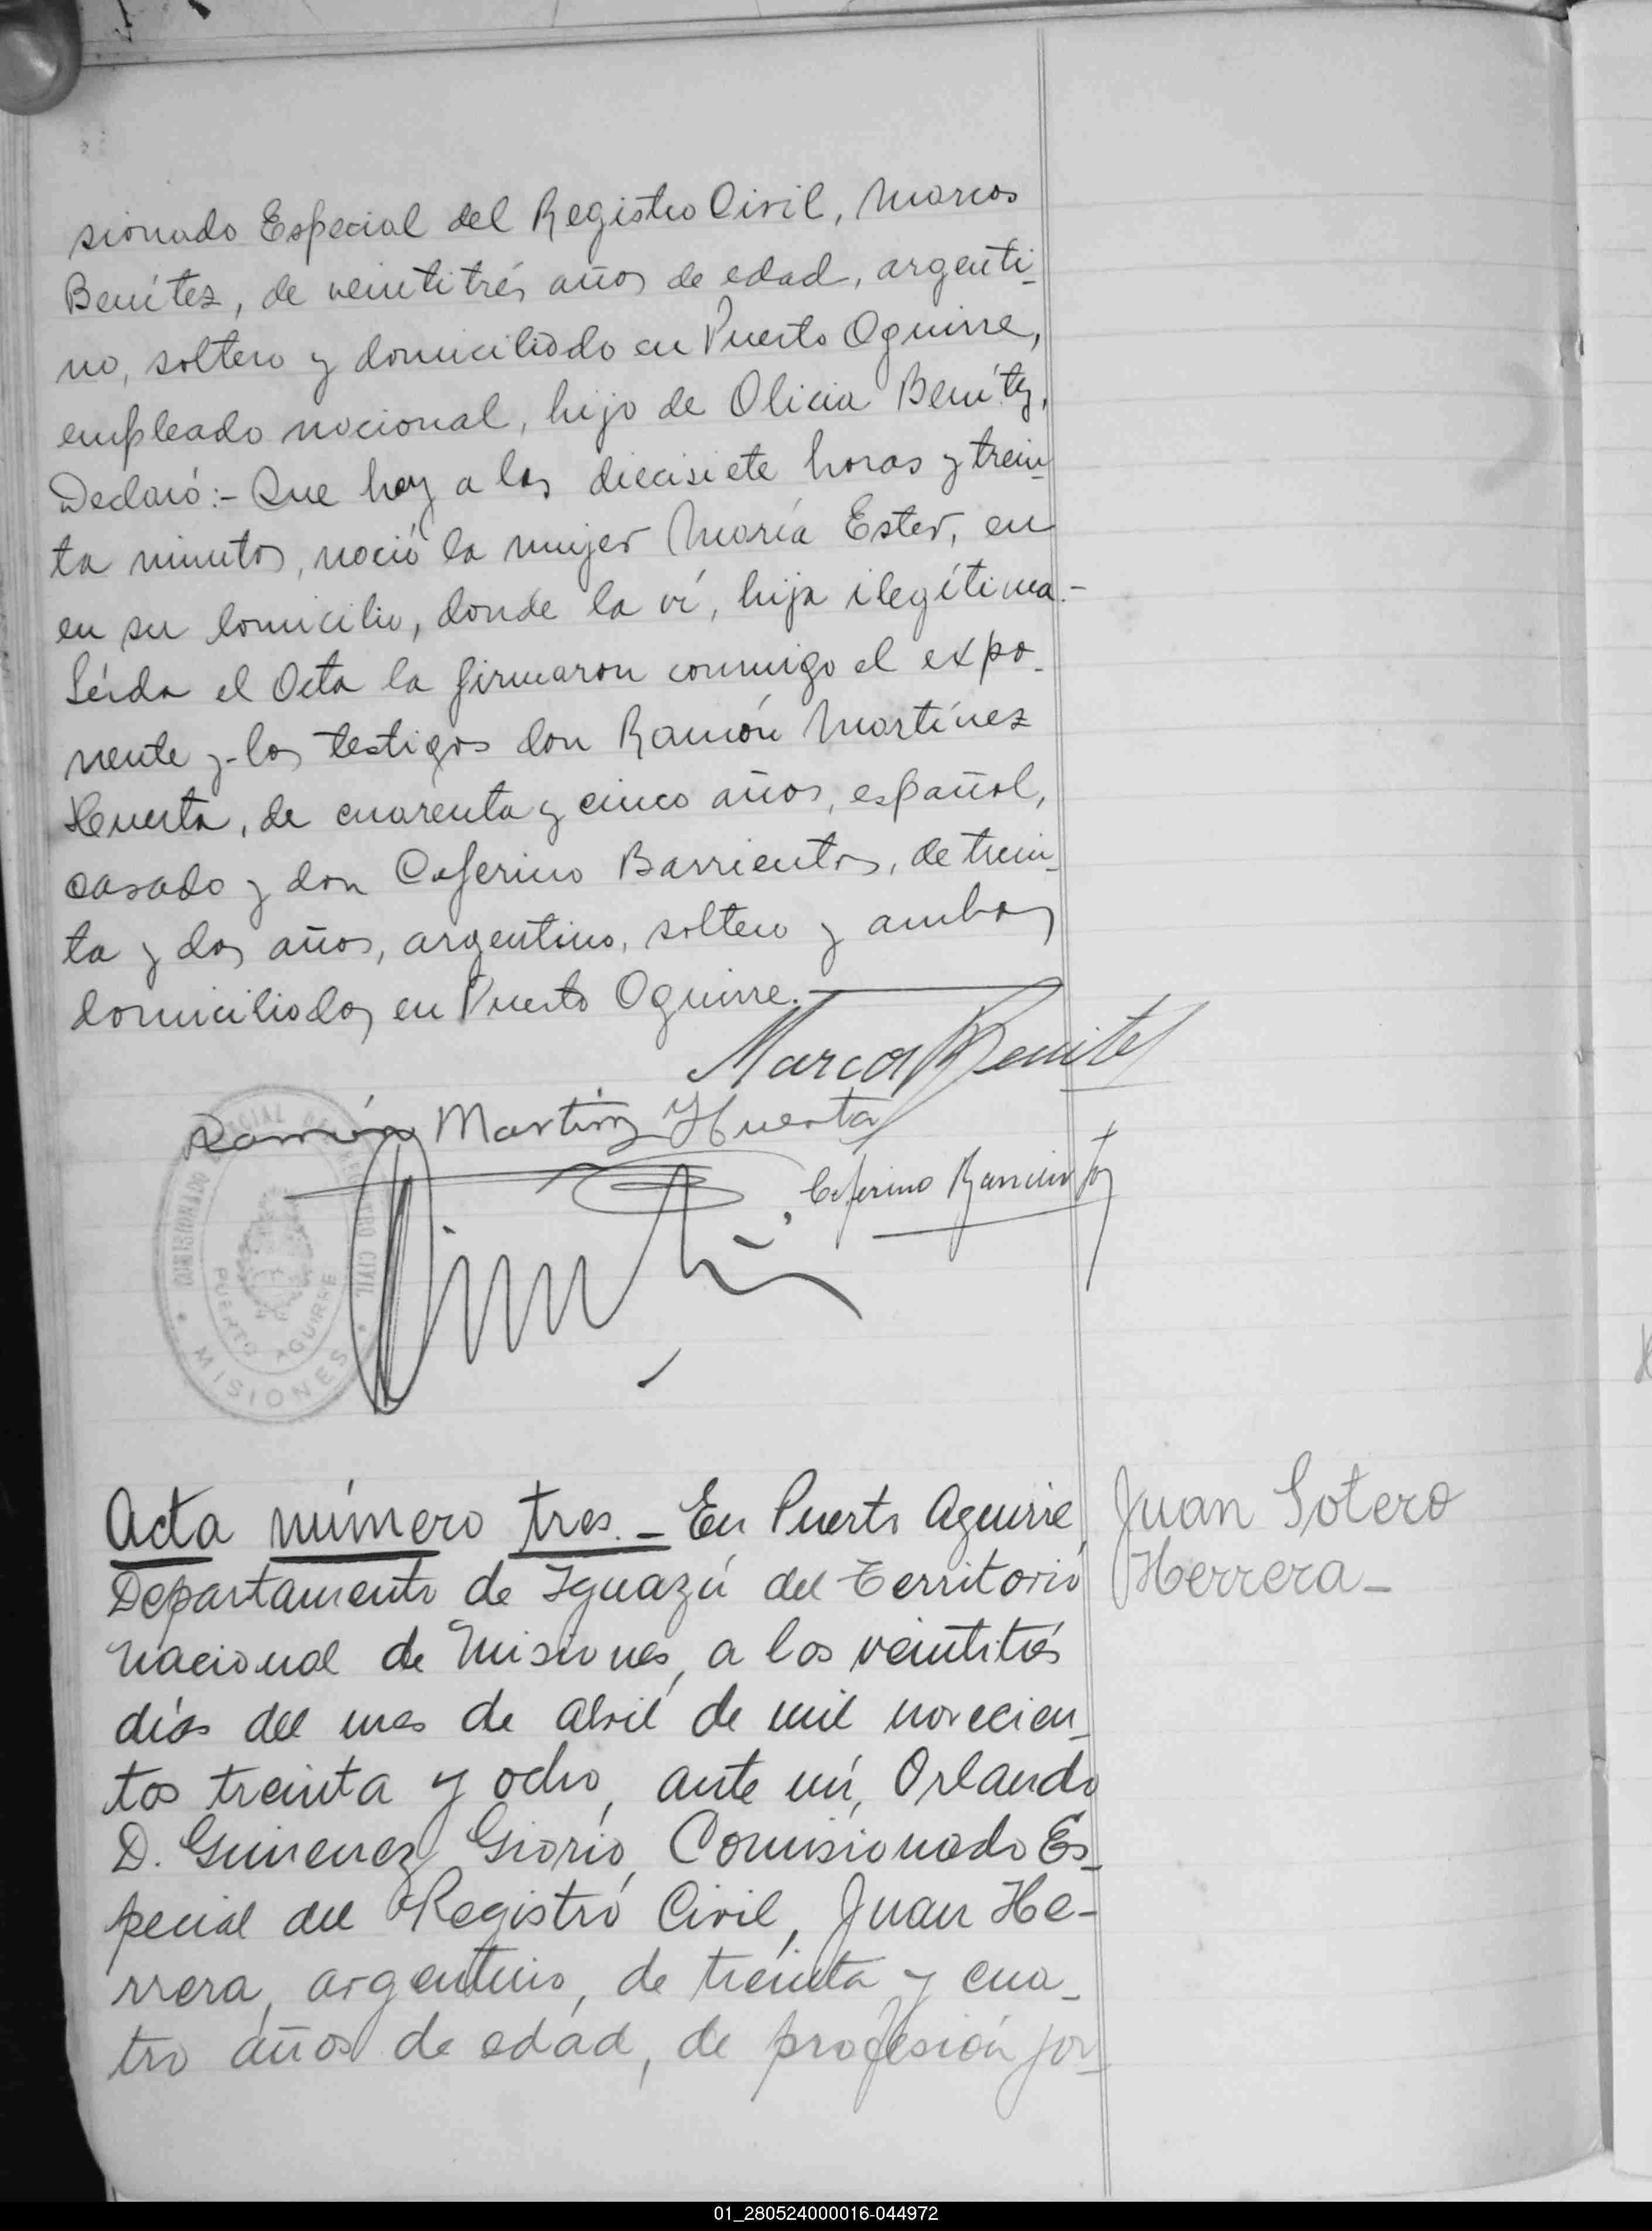 sionado Especial del Registro Civil, Marcos
Benítez, de veintitrés años de edad, argenti-
no, soltero y domiciliado en Puerto Aguirre,
empleado nacional, hijo de Alicia Benítez,
Declaró:- Que hoy a las diecisiete horas y trein-
ta minutos, nació la mujer María Ester, en
en su domicilio, donde la ví, hija ilegítima.-
Leída el Acta la firmaron conmigo el expo-
nente y los testigos don Ramón Martínez
Huerta, de cuarenta y cinco años, español,
casado y don Ceferino Barrientos, de trein-
ta y dos años, argentino, soltero y ambos
domiciliados en Puerto Aguirre.-
Marcos Benitez
Ramón Martinz Huerta
Ceferino Barrientos
COMISIONADO ESPECIAL DEL REGISTRO CIVIL
PUERTO AGUIRRE
MISIONES
Acta número tres.- En Puerto Aguirre
Departamento de Iguazú del Territorio
Nacional de Misiones, a los veintitrés
días del mes de abril de mil novecien-
tos treinta y ocho, ante mí, Orlando
D. Gimenez Giorio, Comisionado Es-
pecial del Registro Civil, Juan He-
rrera, argentino, de treinta y cua-
tro años de edad, de profesión jor-
Juan Sotero
Herrera-
01_280524000016-044972